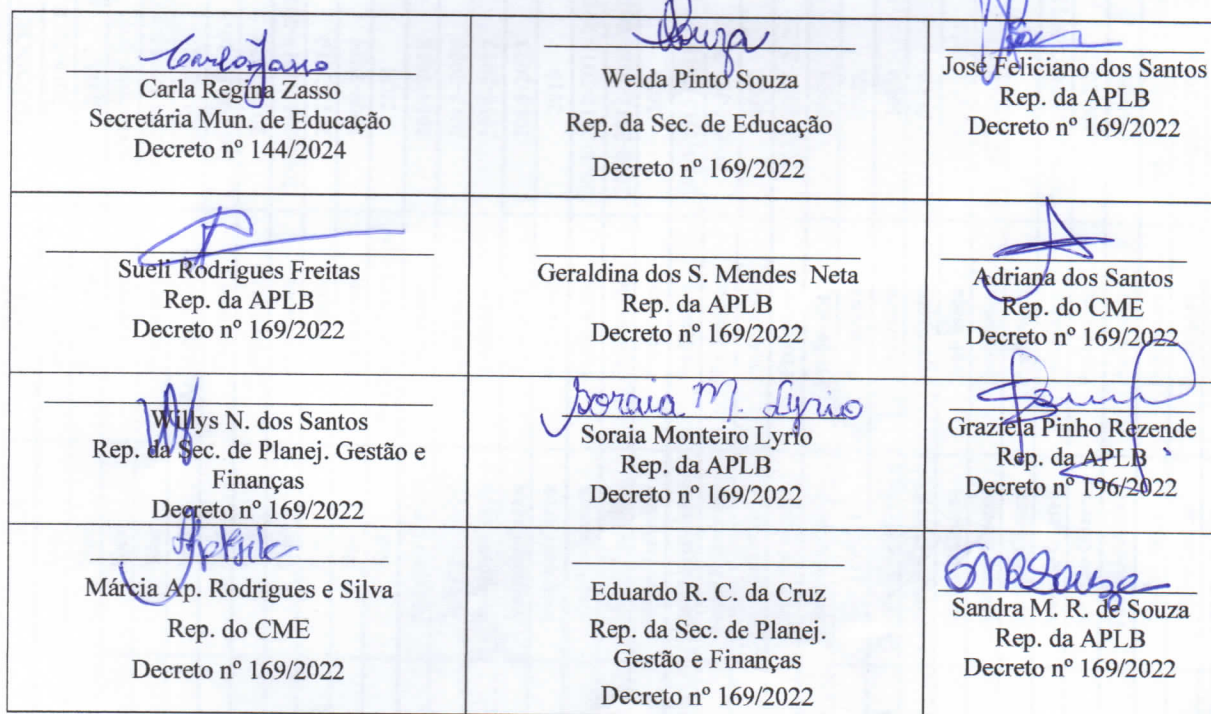 Carla Zasso
Carla Regina Zasso
Secretária Mun. de Educação
Decreto nº 144/2024
Souza
Welda Pinto Souza
Rep. da Sec. de Educação
Decreto nº 169/2022
José Feliciano dos Santos
Rep. da APLB
Decreto nº 169/2022
Sueli Rodrigues Freitas
Rep. da APLB
Decreto nº 169/2022
Geraldina dos S. Mendes Neta
Rep. da APLB
Decreto nº 169/2022
Adriana dos Santos
Rep. do CME
Decreto nº 169/2022
Willys N. dos Santos
Rep. da Sec. de Planej. Gestão e
Finanças
Decreto nº 169/2022
Soraia M. Lyrio
Soraia Monteiro Lyrio
Rep. da APLB
Decreto nº 169/2022
Graziela Pinho Rezende
Rep. da APLB
Decreto nº 196/2022
Márcia Ap. Rodrigues e Silva
Rep. do CME
Decreto nº 169/2022
Eduardo R. C. da Cruz
Rep. da Sec. de Planej.
Gestão e Finanças
Decreto nº 169/2022
SMRSouza
Sandra M. R. de Souza
Rep. da APLB
Decreto nº 169/2022